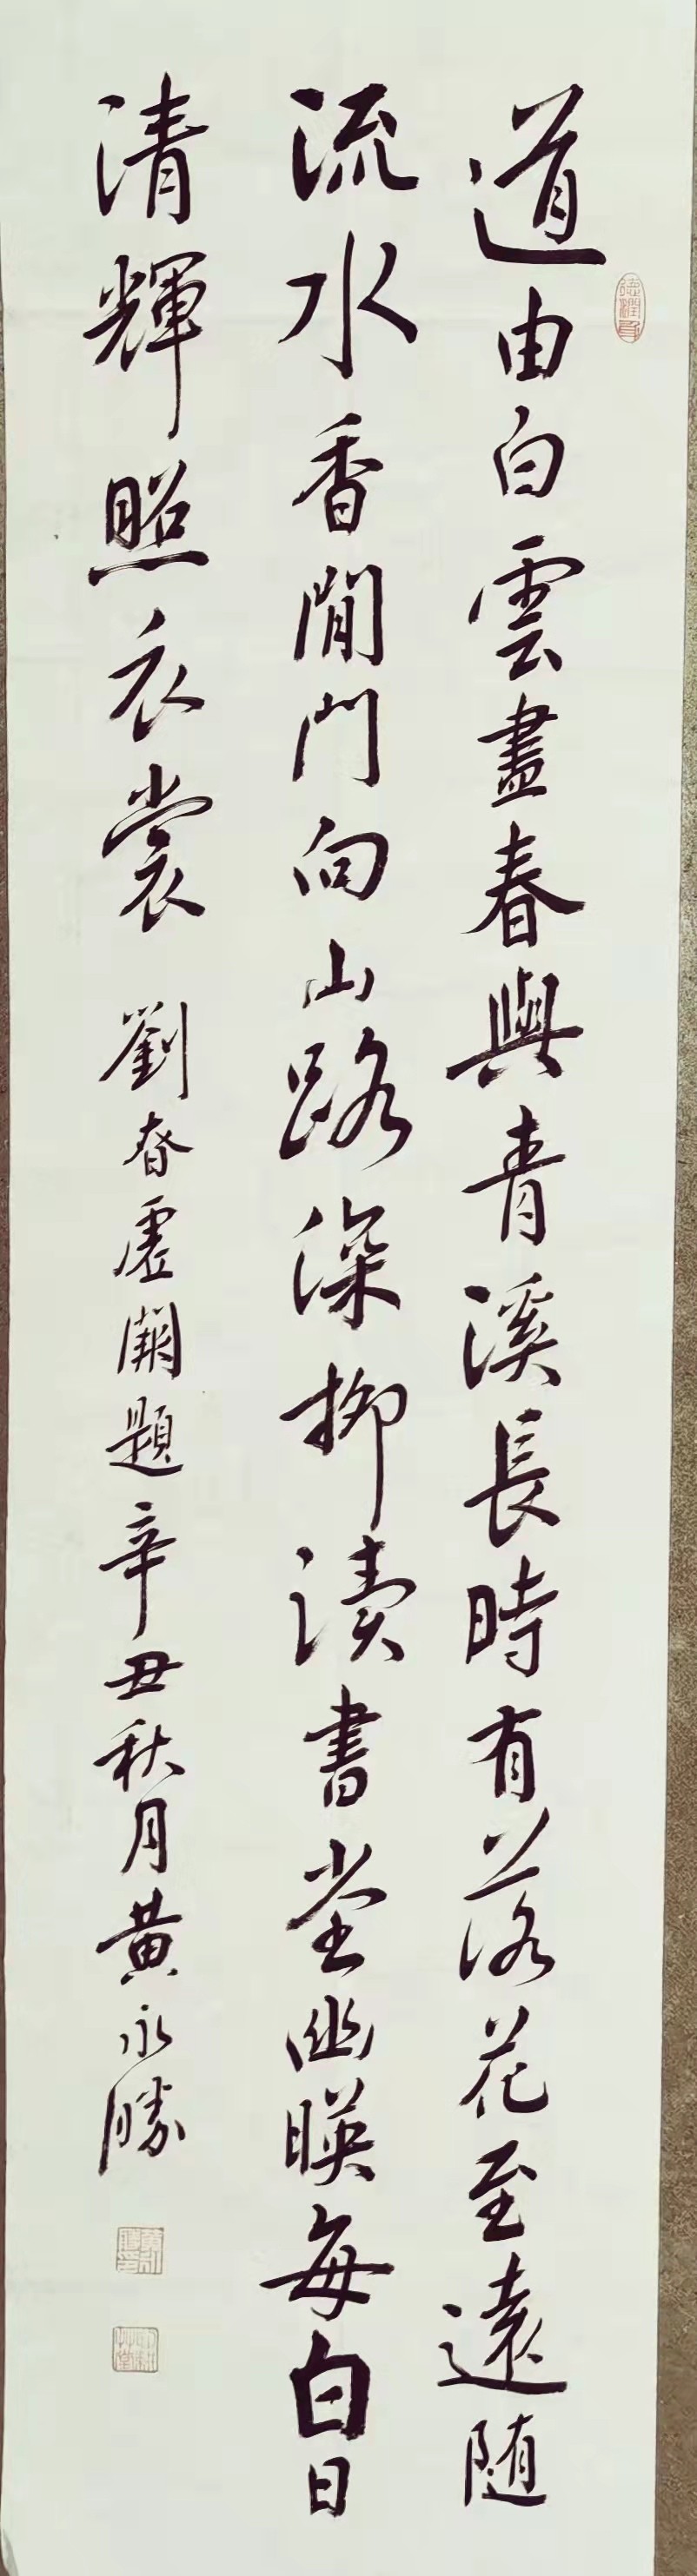 道由白雲盡春與青溪長時有落花至遠随
流水香閒門向山路深柳读書堂幽暎每白日
清輝照衣裳 劉眘虚闕題 辛丑秋月黄永勝
德潤身